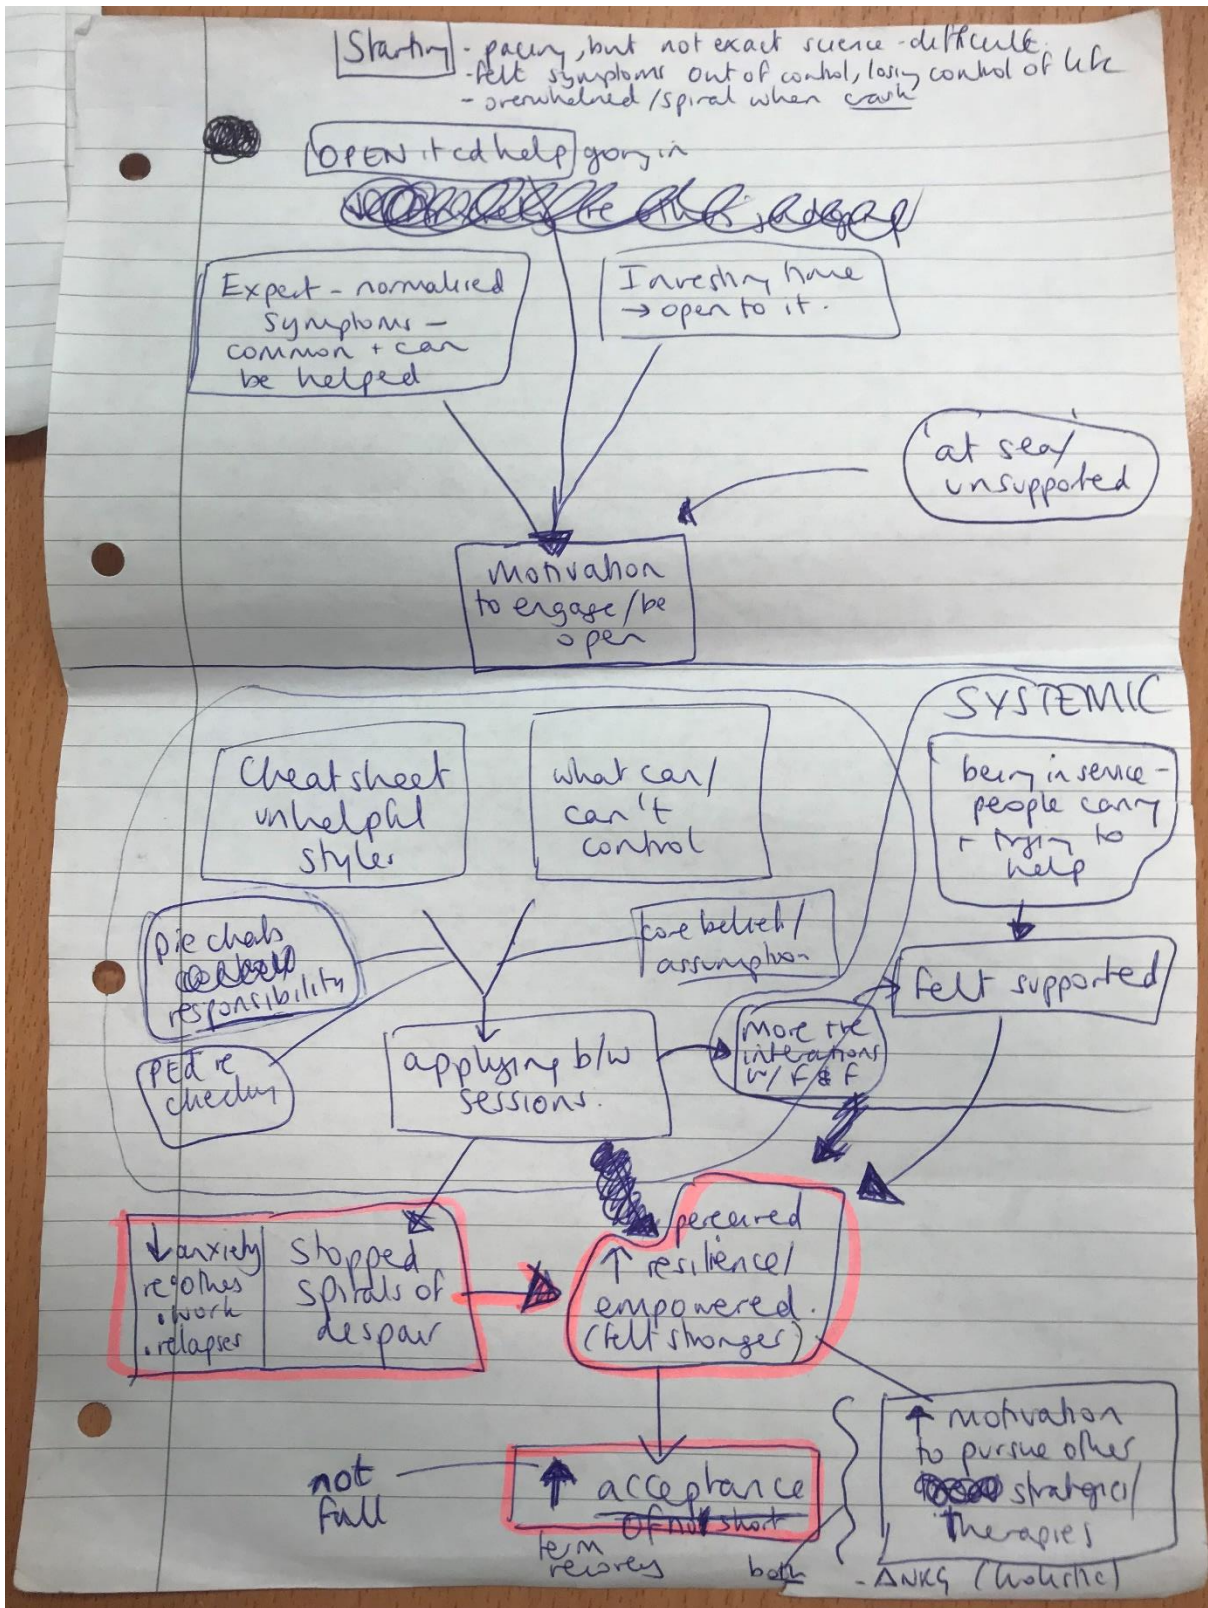 Starting - pacing, but not exact science - difficult.
- felt symptoms out of control, losing control of life
- overwhelmed/spiral when crash
OPEN it cd help going in
Expert - normalised
symptoms -
common + can
be helped
Investing time
→ open to it.
'at sea'/
unsupported
Motivation
to engage/be
open
SYSTEMIC
Cheatsheet
unhelpful
styles
what can/
can't
control
being in service -
people caring
+ trying to
help
pie charts
responsibility
core beliefs/
assumption
felt supported
PEd re
checking
applying b/w
sessions.
More +ve
interations
w/ F & F
↓ anxiety
re: othes
. work
. relapses
Stopped
Spirals of
despair
perceived
↑ resilience/
empowered.
(felt stronger)
not
full
↑ acceptance
of short
term
recovery
both
↑ motivation
to pursue other
strategies/
Therapies
- ANKG (holistic)